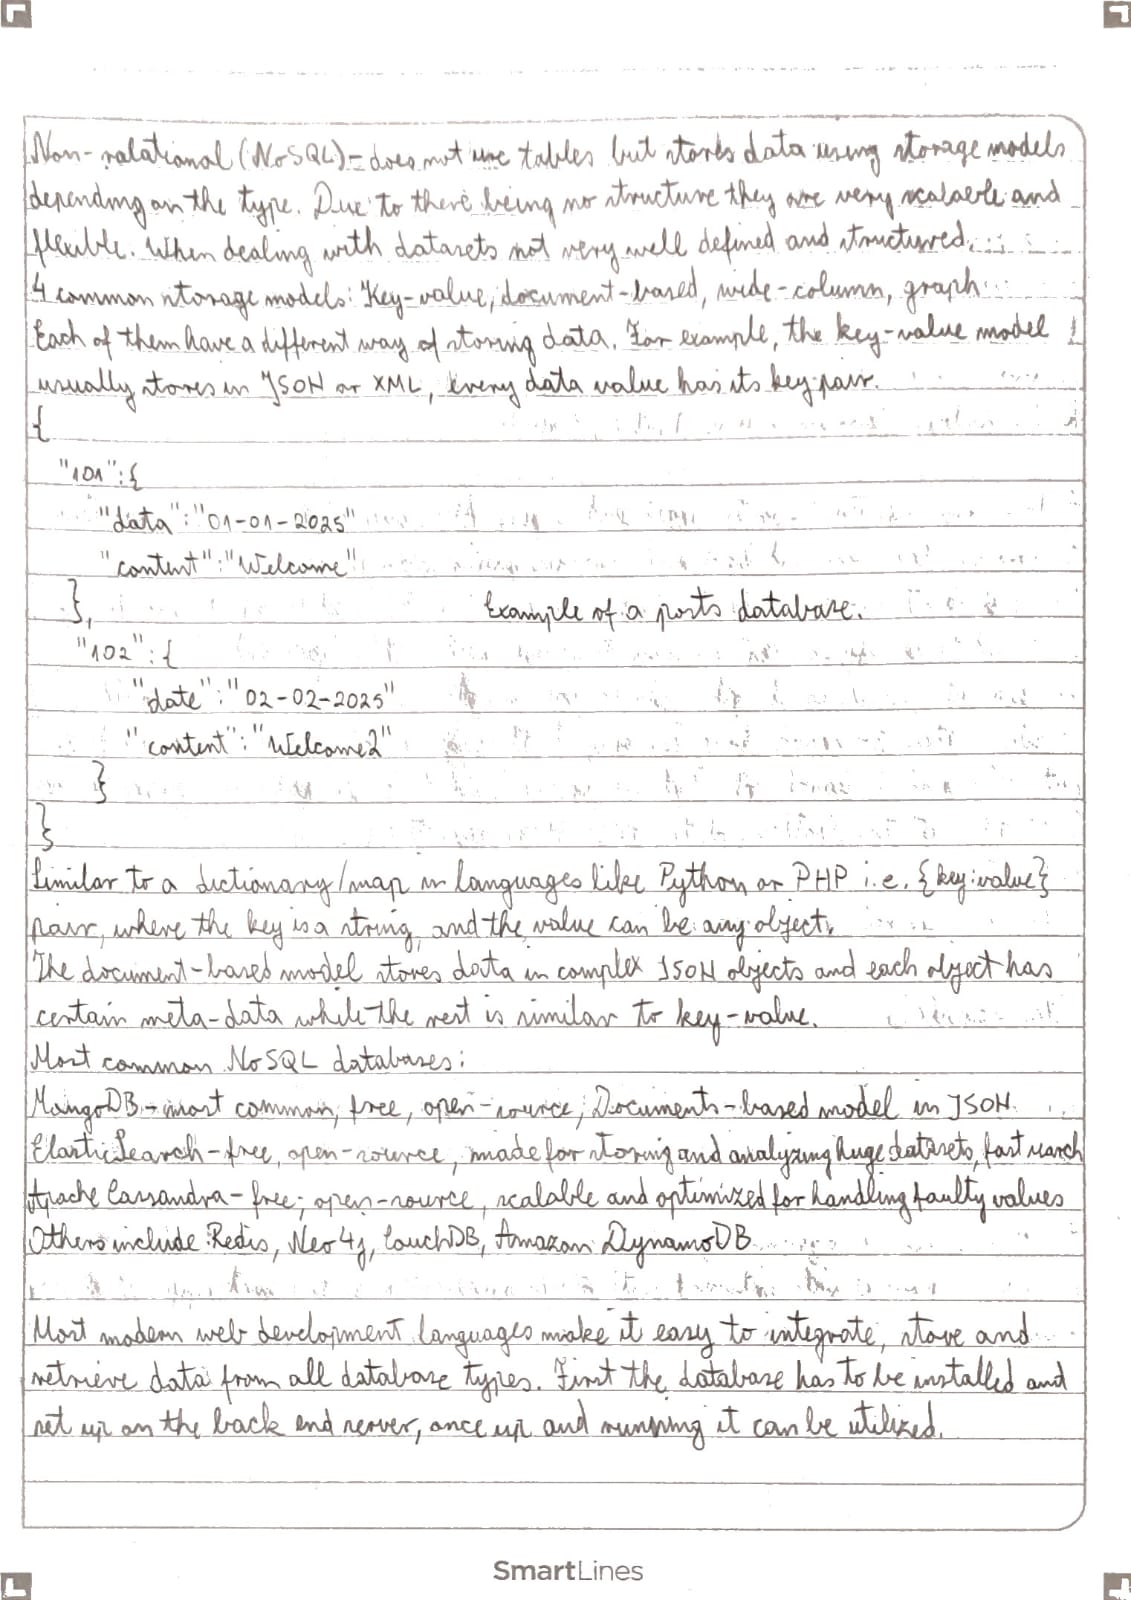 Non-relational (NoSQL) - does not use tables but stores data using storage models
depending on the type. Due to there being no structure they are very scalable and
flexible. When dealing with datasets not very well defined and structured.
4 common storage models: Key-value, document-based, wide-column, graph
Each of them have a different way of storing data. For example, the key-value model
usually stores in JSON or XML, every data value has its key pair.
{
"101":{
"data":"01-01-2025"
"content":"Welcome"
},
Example of a posts database.
"102":{
"date":"02-02-2025"
"content":"Welcome2"
}
}
Similar to a dictionary/map in languages like Python or PHP i.e. {key:value}
pair, where the key is a string, and the value can be any object.
The document-based model stores data in complex JSON objects and each object has
certain meta-data while the rest is similar to key-value.
Most common NoSQL databases:
MongoDB - most common, free, open-source, Documents-based model in JSON.
ElasticSearch - free, open-source, made for storing and analyzing huge datasets, fast search
Apache Cassandra - free, open-source, scalable and optimized for handling faulty values
Others include Redis, Neo4j, CouchDB, Amazon DynamoDB
Most modern web development languages make it easy to integrate, store and
retrieve data from all database types. First the database has to be installed and
set up on the back end server, once up and running it can be utilized.
SmartLines